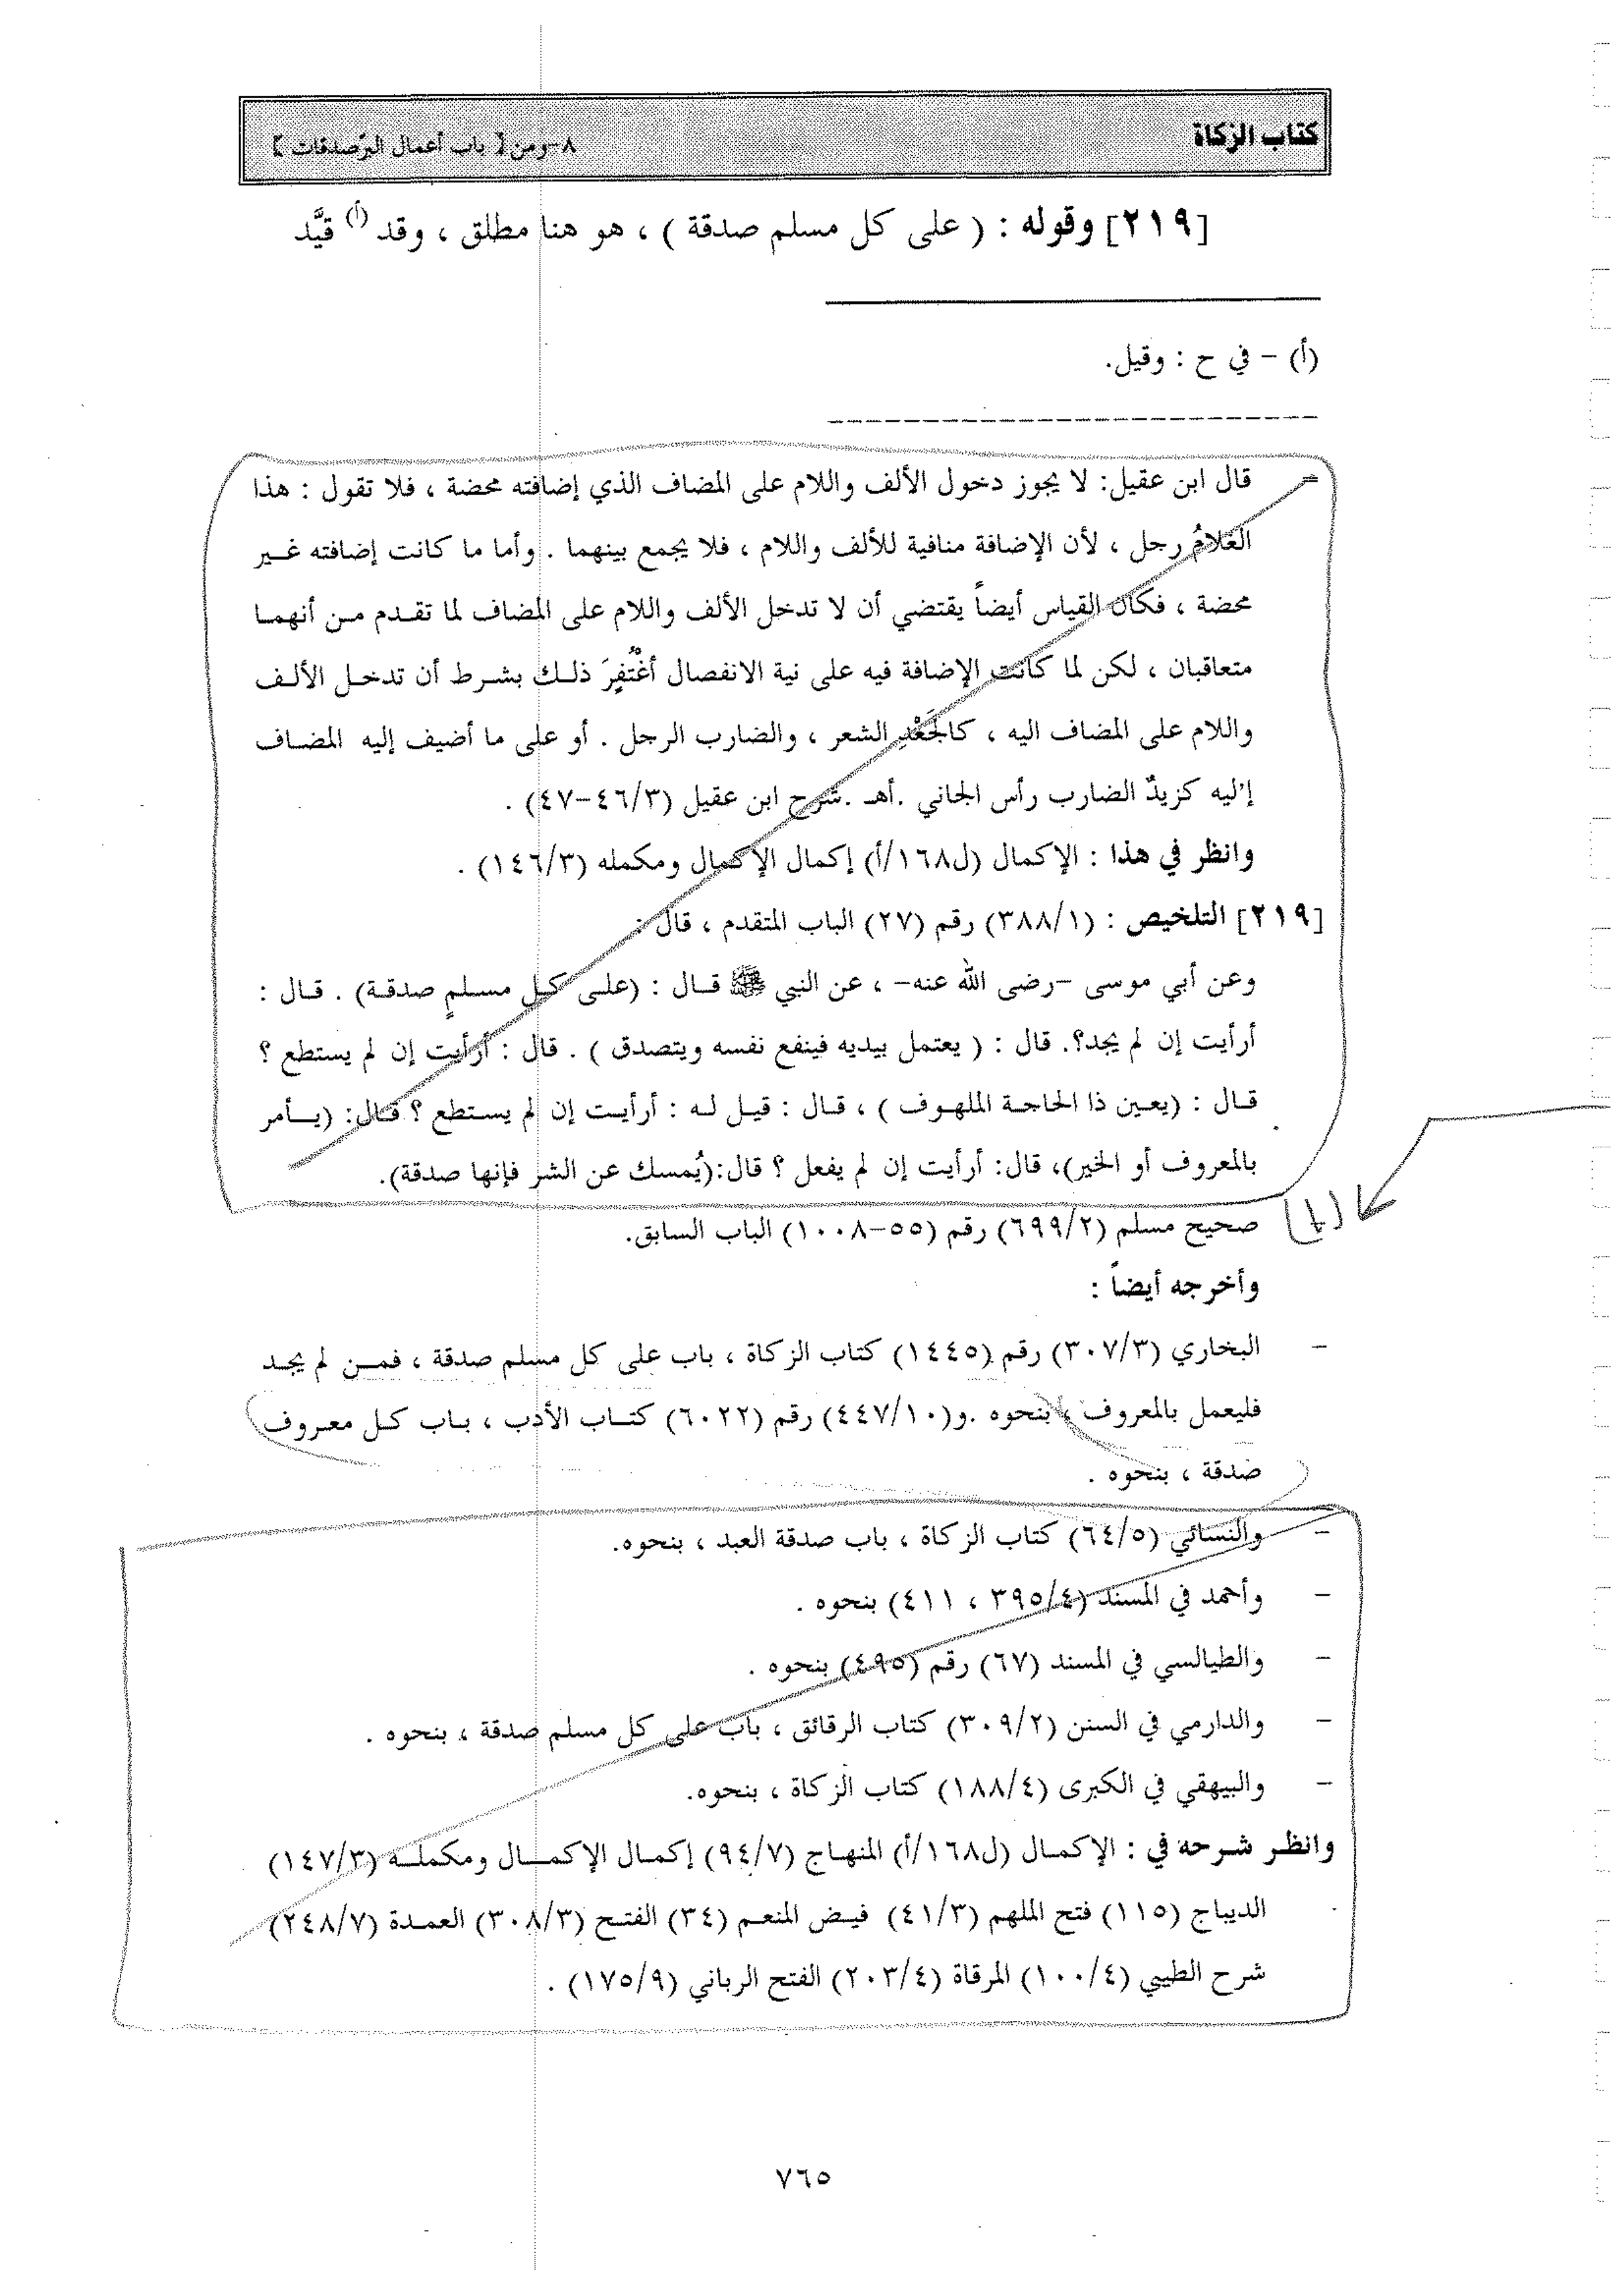 كتاب الزكاة
٨-ومن [ باب أعمال البرّ صدقات ]
[٢١٩] وقوله : ( على كل مسلم صدقة ) ، هو هنا مطلق ، وقد (أ) قيَّد
(أ) – في ح : وقيل.
= قال ابن عقيل: لا يجوز دخول الألف واللام على المضاف الذي إضافته محضة ، فلا تقول : هذا
الغلامُ رجل ، لأن الإضافة منافية للألف واللام ، فلا يجمع بينهما . وأما ما كانت إضافته غير
محضة ، فكان القياس أيضاً يقتضي أن لا تدخل الألف واللام على المضاف لما تقدم من أنهما
متعاقبان ، لكن لما كانت الإضافة فيه على نية الانفصال أغْتُفِرَ ذلك بشرط أن تدخل الألف
واللام على المضاف اليه ، كالجَعْدِ الشعر ، والضارب الرجل . أو على ما أضيف إليه المضاف
إليه كزيدٌ الضارب رأس الجاني .أهـ .شرح ابن عقيل (٤٦/٣-٤٧) .
وانظر في هذا : الإكمال (ل١٦٨/أ) إكمال الإكمال ومكمله (١٤٦/٣) .
[٢١٩] التلخيص : (٣٨٨/١) رقم (٢٧) الباب المتقدم ، قال :
وعن أبي موسى -رضى الله عنه- ، عن النبي ﷺ قال : (على كل مسلمٍ صدقة) . قال :
أرأيت إن لم يجد؟. قال : ( يعتمل بيديه فينفع نفسه ويتصدق ) . قال : أرأيت إن لم يستطع ؟
قال : (يعين ذا الحاجة الملهوف ) ، قال : قيل له : أرأيت إن لم يستطع ؟ قال: (يأمر
بالمعروف أو الخير)، قال: أرأيت إن لم يفعل ؟ قال:(يُمسك عن الشر فإنها صدقة).
صحيح مسلم (٦٩٩/٢) رقم (٥٥-١٠٠٨) الباب السابق.
وأخرجه أيضاً :
– البخاري (٣٠٧/٣) رقم (١٤٤٥) كتاب الزكاة ، باب على كل مسلم صدقة ، فمن لم يجد
فليعمل بالمعروف ، بنحوه .و(٤٤٧/١٠) رقم (٦٠٢٢) كتاب الأدب ، باب كل معروف
صدقة ، بنحوه .
– والنسائي (٦٤/٥) كتاب الزكاة ، باب صدقة العبد ، بنحوه.
– وأحمد في المسند (٣٩٥/٤ ، ٤١١) بنحوه .
– والطيالسي في المسند (٦٧) رقم (٤٩٥) بنحوه .
– والدارمي في السنن (٣٠٩/٢) كتاب الرقائق ، باب على كل مسلم صدقة ، بنحوه .
– والبيهقي في الكبرى (١٨٨/٤) كتاب الزكاة ، بنحوه.
وانظر شرحه في : الإكمال (ل١٦٨/أ) المنهاج (٩٤/٧) إكمال الإكمال ومكمله (١٤٧/٣)
الديباج (١١٥) فتح الملهم (٤١/٣) فيض المنعم (٣٤) الفتح (٣٠٨/٣) العمدة (٢٤٨/٧)
شرح الطيبي (١٠٠/٤) المرقاة (٢٠٣/٤) الفتح الرباني (١٧٥/٩) .
٧٦٥